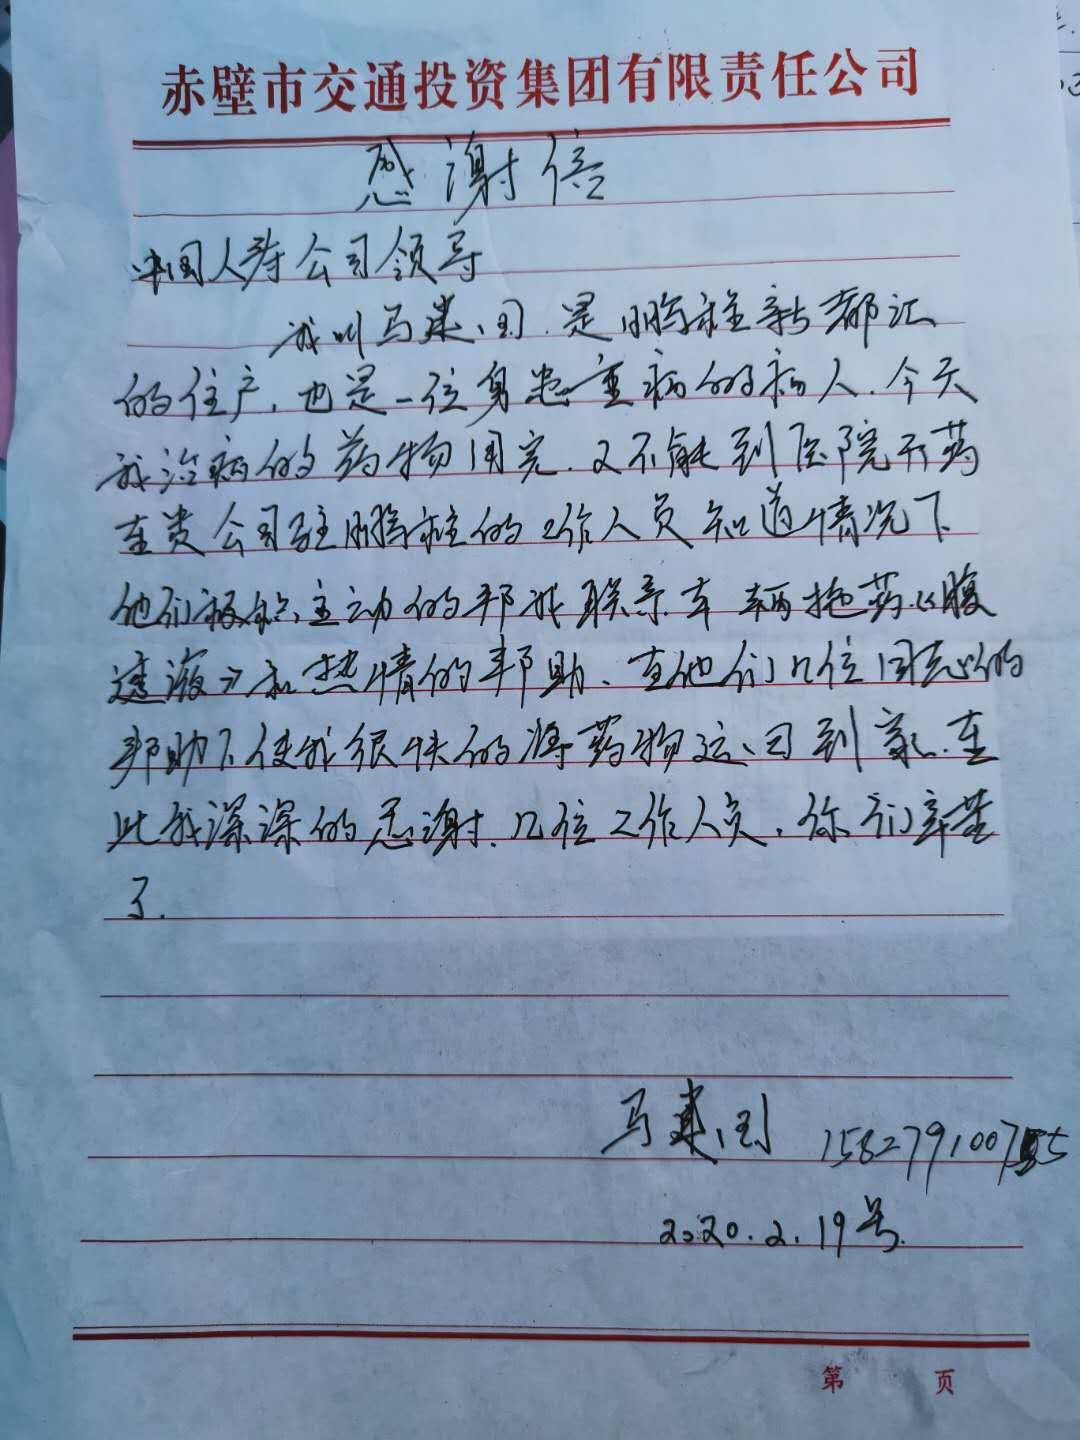 赤壁市交通投资集团有限责任公司
感谢信
中国人寿公司领导
我叫马建国.是鹏程新都汇
的住户,也是一位身患重病的病人.今天
我治病的药物用完.又不能到医院开药
在贵公司驻鹏程的工作人员知道情况下
他们积极主动的帮我联系车辆拖药《腹
透液》和热情的帮助、在他们几位同志的
帮助下使我很快的将药物运回到家.在
此我深深的感谢.几位工作人员,你们辛苦
了.
马建国 15827910075
2020.2.19号.
第 页